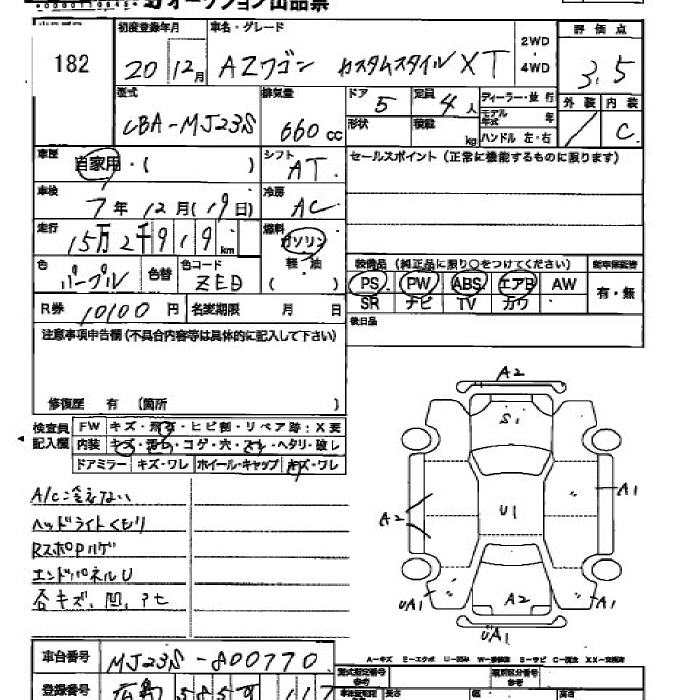 オークション出品票
182
初度登録年月 車名・グレード 2WD 4WD 評価点
20 12月 AZワゴン カスタムスタイルXT 3.5
型式 排気量 ドア 5 定員 4人 ディーラー・並行 外装 内装
CBA-MJ23S 660cc 形状 積載 kg モデル年式 年 / C
ハンドル 左・右
車歴 自家用・( ) シフト AT セールスポイント(正常に機能するものに限ります)
車検 7年12月(19日) 冷房 AC
走行 15万2千919km 燃料 ガソリン
軽・油
色 パープル 色替 色コード ZED ( ) 装備品(純正品に限り○をつけてください) 新車保証書
PS PW ABS エアB AW 有・無
SR ナビ TV カワ
R券 10100円 名変期限 月 日 後日品
注意事項申告欄(不具合内容等は具体的に記入して下さい)
修復歴 有(箇所 )
検査員 FW キズ・飛石・ヒビ割・リペア跡:X要
記入欄 内装 キズ・汚れ・コゲ・穴・スレ・ヘタリ・破レ
ドアミラー キズ・ワレ ホイール・キャップ キズ・ワレ
A/C冷えない
ヘッドライトくもり
RスポPハゲ
エンドパネルU
各キズ、凹、アセ
A2
S1
A2
U1
A1
UA1
A2
A1
UA1
A-キズ E-エクボ
車台番号 MJ23S-800770
登録番号 広島